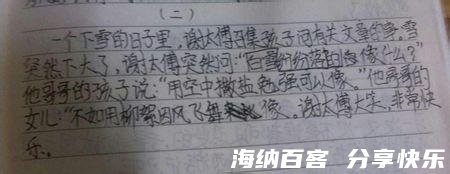 （二）
一个下雪的日子里，谢太傅召集孩子问有关文章的事。雪
突然下大了，谢太傅突然问：“白雪纷纷落的像什么？”
他哥哥的孩子说：“用空中撒盐勉强可以像。”他哥哥的
女儿：“不如用柳絮因风飞舞像。谢太傅大笑，非常快
乐。
海纳百客 分享快乐